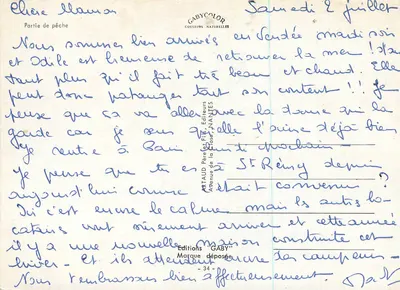 Chère Maman
Samedi 2 juillet
Partie de pêche
GABYCOLOR
Nous sommes bien arrivés en Vendée mardi soir
et Odile est heureuse de retrouver la mer ! d'au
tant plus qu'il fait très beau et chaud. Elle
peut donc patauger tout son content !! Je
pense que ça va aller avec la dame qui la
garde car je sens qu'elle l'aime déjà bien
Je rentre à Paris lundi prochain
Je pense que tu es à St Rémy depuis
aujourd'hui comme était convenu ?
Ici c'est encore le calme mais les autres lo
cataires vont sûrement arriver et cette année
il y a une nouvelle maison construite cet
hiver. Et ils attendent encore des campeurs.
Nous t'embrassons bien affectueusement.
ARTAUD Père et Fils, Editeurs
NANTES
Editions GABY
Marque déposée
- 34 -